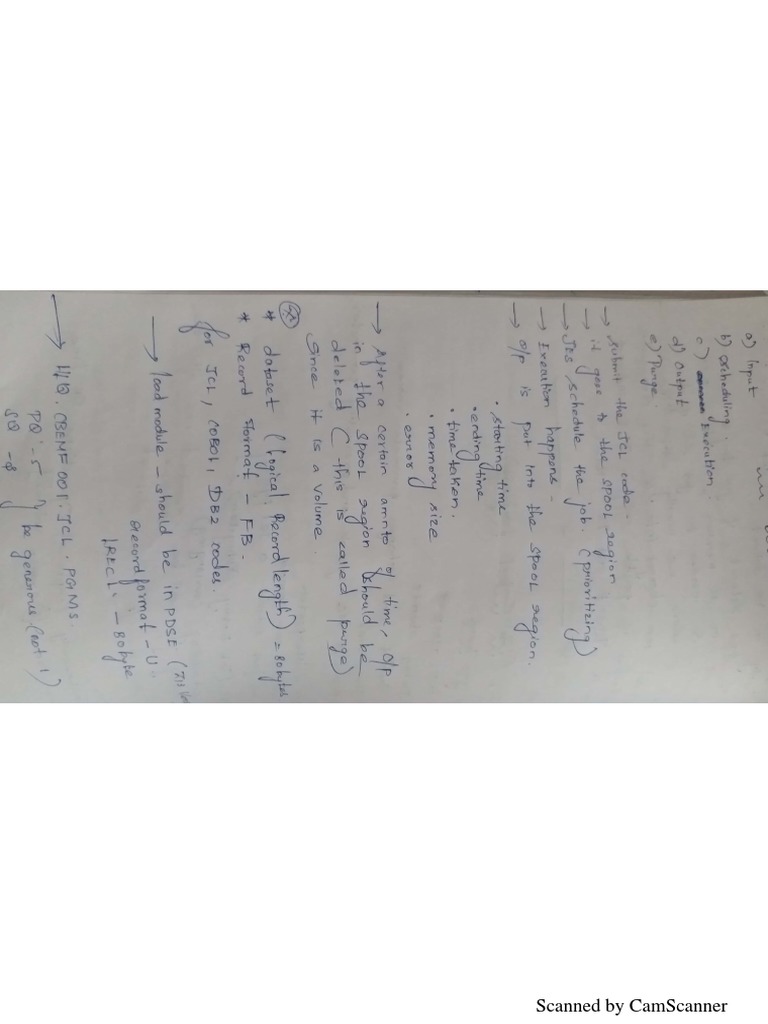 a) Input
b) Scheduling.
c) Execution.
d) Output
e) Purge.
→ submit the JCL code.
→ it goes to the SPOOL region
→ JES schedule the job. (prioritizing)
→ Execution happens -
→ O/P is put into the SPOOL region.
• starting time
• ending time
• time taken.
• memory size
• error
→ After a certain amnto of time, O/P
in the SPOOL region should be
deleted (this is called purge)
since it is a volume.
* dataset (Logical Record length) = 80bytes
* Record Format - FB.
for JCL, COBOL, DB2 codes.
→ load module - should be in PDSE
Record format - U
LRECL - 80 byte
→ HQ. CBENF001. JCL. PGMS.
PQ - 5 } be generous (not 1)
SQ - 8
Scanned by CamScanner